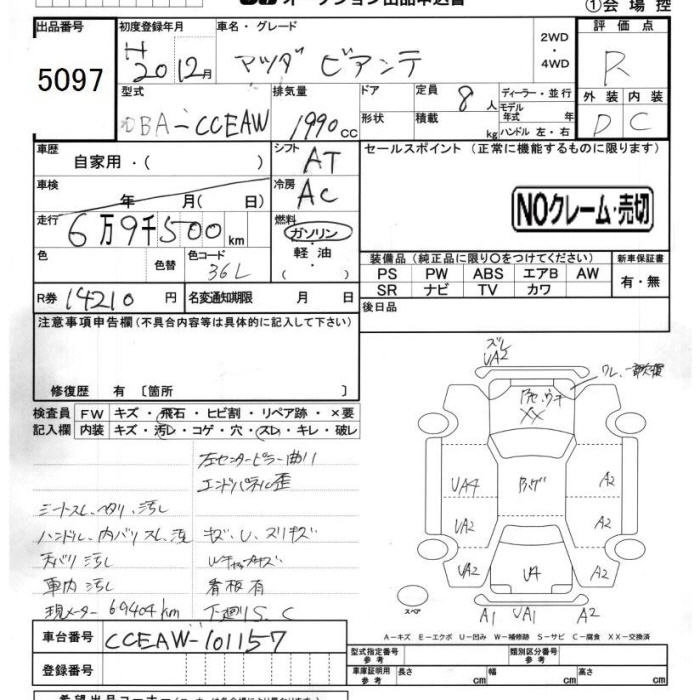 オークション出品申込書
①会場控
出品番号
5097
初度登録年月
H20 12月
車名・グレード
マツダ ビアンテ
2WD
・
4WD
評価点
R
型式
DBA-CCEAW
排気量
1990cc
ドア
形状
定員 8人
積載 kg
ディーラー・並行
モデル年式 年
ハンドル 左・右
外装 内装
D C
車歴
自家用・( )
シフト
AT
セールスポイント(正常に機能するものに限ります)
車検
年 月( 日)
冷房
AC
NOクレーム・売切
走行
6万9千500km
燃料
ガソリン
軽油
( )
色
色替
色コード
36L
装備品(純正品に限り○をつけてください)
新車保証書
PS PW ABS エアB AW
SR ナビ TV カワ
有・無
R券 14210円
名変通知期限 月 日
後日品
注意事項申告欄(不具合内容等は具体的に記入して下さい)
修復歴 有〔箇所 〕
検査員 FW キズ・飛石・ヒビ割・リペア跡・×要
記入欄 内装 キズ・汚レ・コゲ・穴・スレ・キレ・破レ
左センターピラー曲り
エンドパネル歪
シートスレ、ヘタリ、汚レ
ハンドル、内バリスレ、汚
キズ、U、スリキズ
天バリ汚レ
車内汚レ
看板有
現メーター 69404km
下廻りS、C
ズレ
UA2
ワレ、一部欠損
XX
UA4
A2
UA2
A2
UA2
U4
A2
スペア
A1 UA1 A2
A-キズ E-エクボ U-凹み W-補修跡 S-サビ C-腐食 XX-交換済
車台番号 CCEAW-101157
登録番号
型式指定番号 参考
類別区分番号 参考
車庫証明用 参考 長さ cm 幅 cm 高さ cm